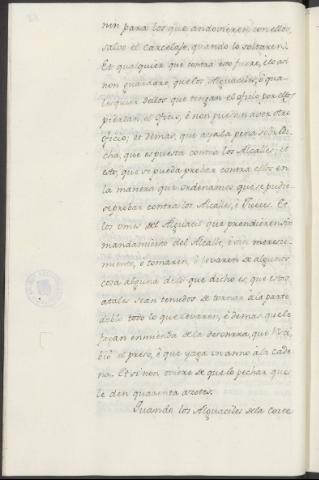 nin para los que andovieren con ellos,
salvo el carcelaje, quando lo soltaren.
Et qualquier que contra esto fuere, elo asi
non guardare, que los Alguaciles, ó qua-
lesquier dellos que tengan el oficio por ellos
pierdan el oficio, é non puedan aver otro
oficio; et demas, que ayala pena sobredi-
cha, que es puesta contra los Alcalles; et
esto, que se pueda probar contra ellos en
la manera que ordenamos que se pudie-
se probar contra los Alcalles, é Jueces. Et
los omes del Alguacil que prendieren sin
mandamiento del Alcalle, ó sin meresci-
miento, ó tomaren, ó levaren de alguno
cosa alguna de lo que dicho es, que estos
atales sean tenudos de tornar ala parte
doble todo lo que levaren, é demas que le
fagan enmienda de la desonrra, que resci-
bió el preso, é que yaga un anno ála cade-
na. Et si non oviere de que lo pechar que
le den quarenta azotes.
Quando los Alguaciles dela Corte